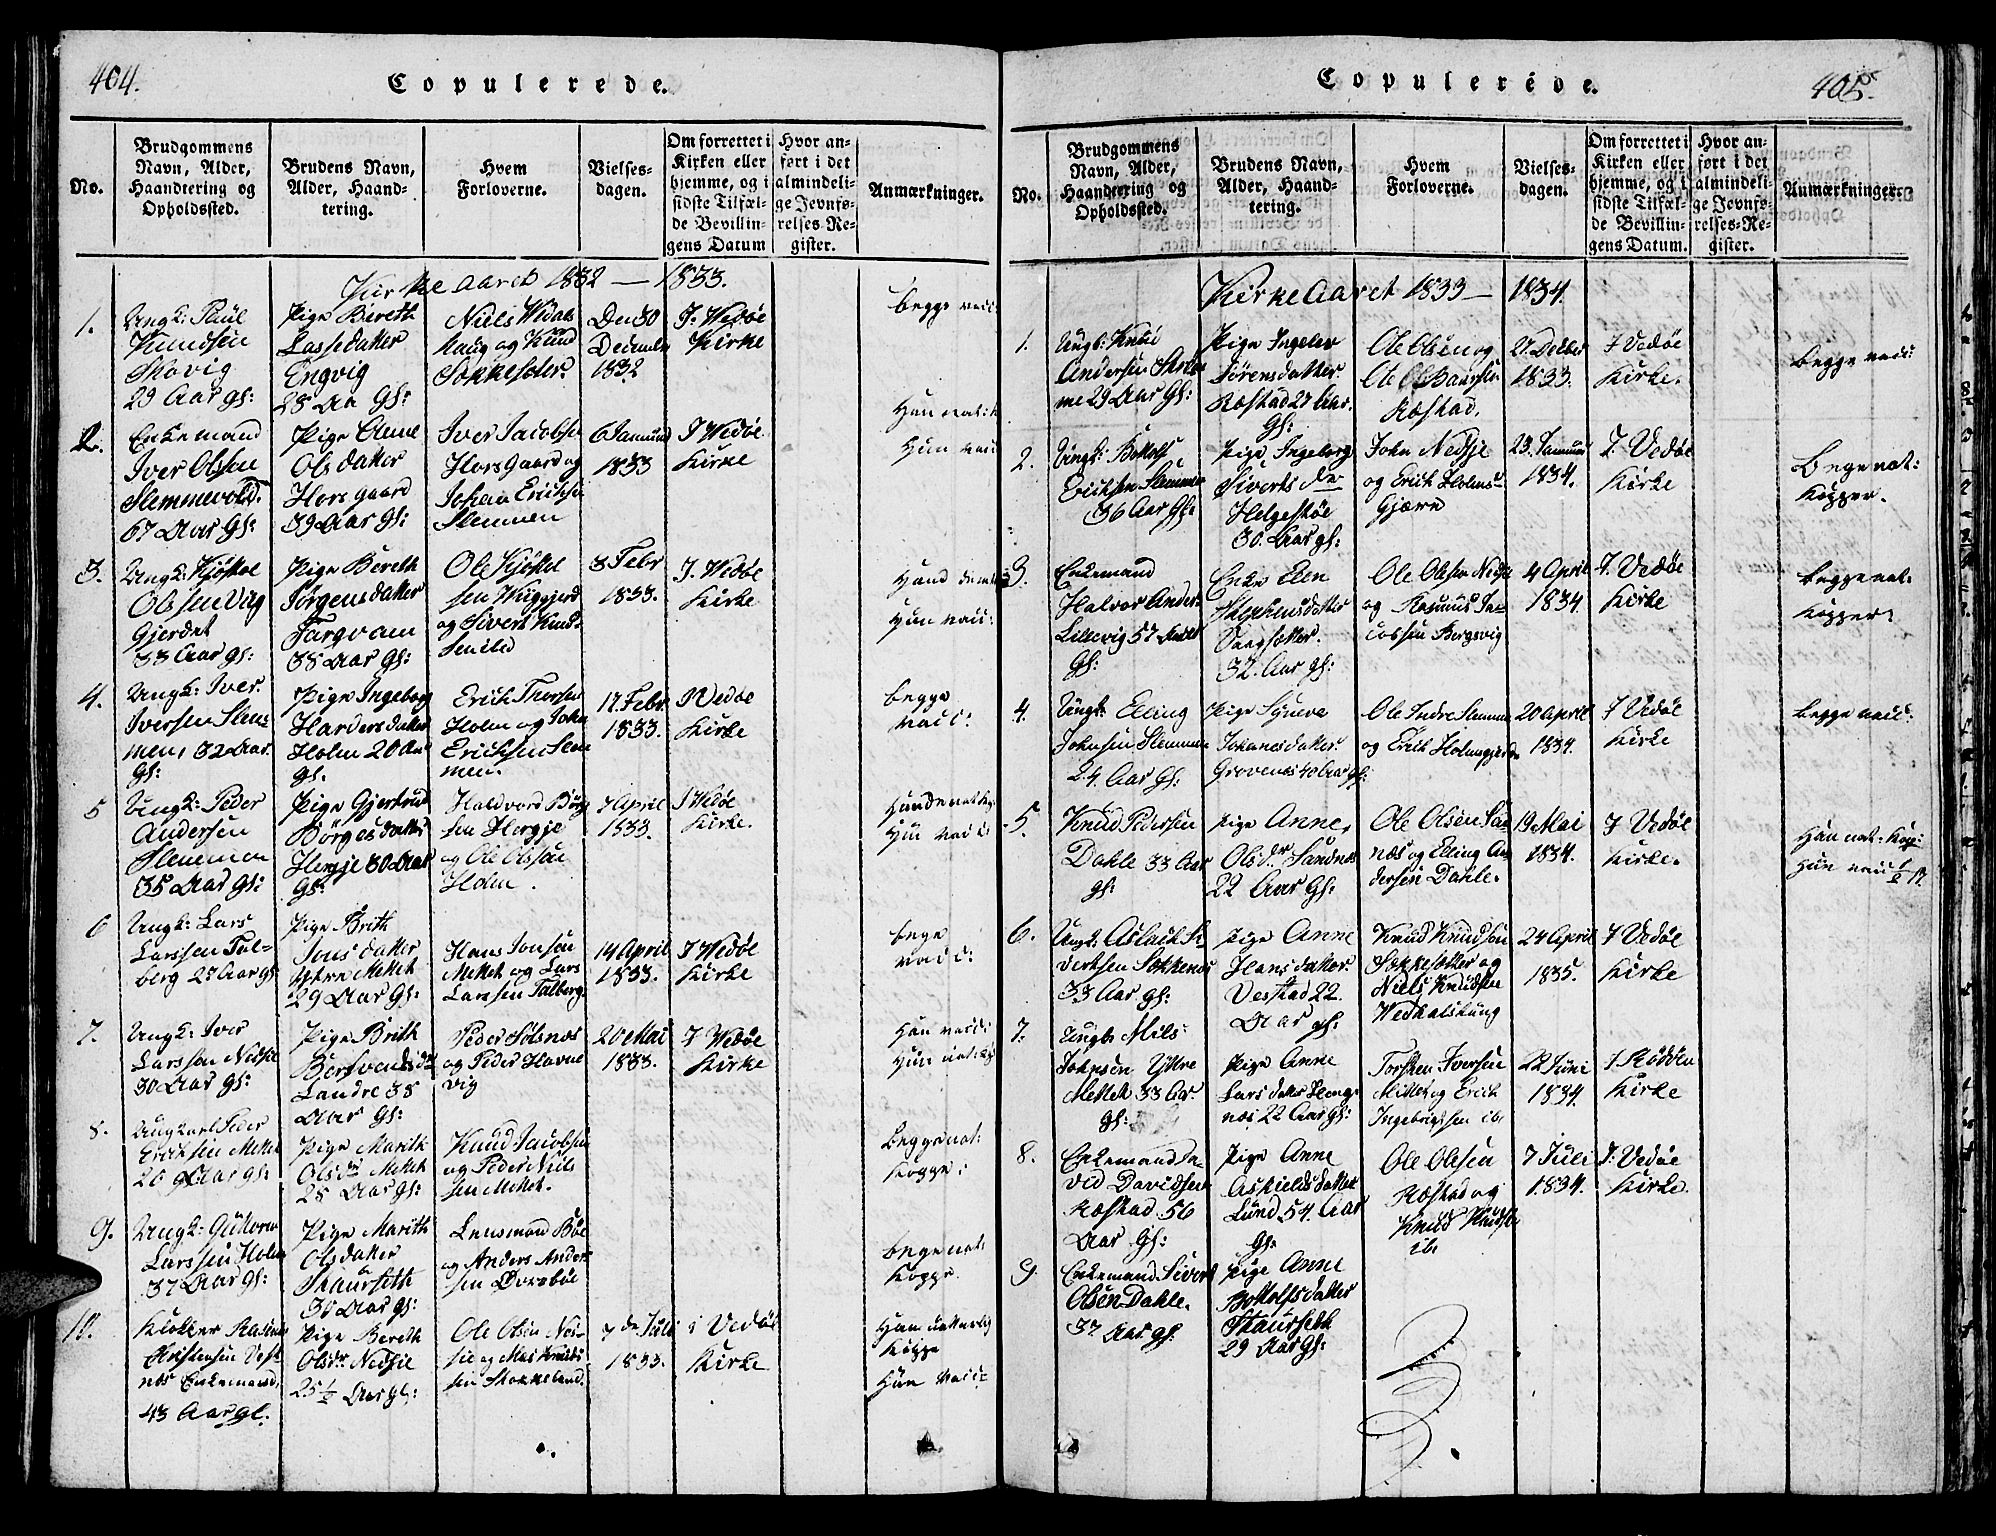 404.
Copulerede.
No.
Brudgommens
Navn, Alder,
Haandtering og
Opholdssted.
Brudens Navn,
Alder, Haand-
tering.
Hvem
Forloverne.
Vielses-
dagen.
Om forrettet i
Kirken eller
hjemme, og i
sidste Tilfæl-
de Bevillin-
gens Datum
Hvor an-
ført i det
almindeli-
ge Jevnfø-
relses-Re-
gister.
Anmærkninger.
Kirkeaaret 1832 — 1833.
1.
Ungk: Paul
Knudsen
Skovig
29 Aar gl:
Pige Bereth
Lassedatter
Engvig
28 Aa gl:
Niels Wedals
haug og Knud
Sokkesæter
Den 30
Decembr
1832
I Wedøe
Kirke
begge vacc:
2.
Enkemand
Iver Olssen
Slemmevold.
67 Aar gl:
Pige Anne
Olsdatter
Horsgaard
39 Aar gl:
Iver Jacobsen
Horsgaard og
Johan Ericksen
Slemmen
6 Januar
1833
I Wedøe
Kirke
Han nat:
Hun vacc:
3.
Ungk: Kjøstol
Olssen Vug
Gjerdet
33 Aar gl:
Pige Bereth
Jørgensdatter
Torgvam
38 Aar gl:
Ole Kjøstol
sen Wuggjerd
og Sivert Knud-
sen ibd
3 Febr
1833.
I. Wedøe
Kirke
Hun vacc:
4.
Ungk: Iver
Iversen Slem-
men, 32 Aar
gl:
Pige Ingeborg
Hardersdatter
Holm 20 Aar
gl:
Erich Thorsen
Holm og John
Erichsen Slem
men.
17 Febr
1833.
I Wedøe
Kirke
begge
vacc:
5
Ungk: Peder
Andersen
Slemmen
35 Aar gl:
Pige Gjertrud
Børgesdatter
Hergje 30 Aar
gl:
Haldvord Børg
sen Hergje
og Ole Olssen
Holm.
7 April
1833.
I Wedøe
Kirke.
Hun vacc:
6
Ungk: Lars
Larssen Tal-
berg 27 Aar gl
Pige Brith
Jonsdatter
Ytre Mettet
29 Aar gl:
Hans Jonsen
Mettet og Lars
Larssen Talberg
14 April
1833.
I Wedøe
Kirke
begge
vacc:
7.
Ungk: Iver
Larsson Nedsie
30 Aar gl:
Pige Brith
Landre 38
Aar gl:
Peder Solsnæs
og Peder Havne
vig
20 Mai
1833.
I Wedøe
Kirke
Han vacc:
8.
Ungkarl Peder
Ericksen Mettet
20 Aar gl:
Pige Marith
Olsdr Mettet
28 Aar gl:
Knud Jacobsen
og Peder Niels
sen Mettet.
Begge nat:
Koppe:
9.
Ungk: Guttorm
Larssen Holm
37 Aar gl:
Pige Marith
Olsdatter
Skaurseth
30 Aar gl:
Lensmand Bøe
og Anders Anders
sen Øverbøe
bege nat:
Koppe.
10.
Klokker Rasmus
Kristensen Vest
næs Enkemand,
43 Aar gl.
Pige Bereth
Olsdr Nedsie
25½ Aar gl:
Ole Olsen Ned-
sie og Mas Knuds
sen Stokkeland.
7de Juli
1833.
i Vedøe
Kirke
Ham naturlig
Koppe
Hun vacc:
Copulerede.
405.
No.
Brudgommens
Navn, Alder,
Haandtering og
Opholdssted.
Brudens Navn,
Alder, Haand-
tering.
Hvem
Forloverne.
Vielses-
dagen.
Om forrettet i
Kirken eller
hjemme, og i
sidste Tilfæl-
de Bevillin-
gens Datum.
Hvor an-
ført i det
almindeli-
ge Jevnfø-
relses-Re-
gister.
Anmærkninger.
Kirkeaaret 1833 — 1834.
1.
Ungk: Knud
Andersen
29 Aar gl:
Pige Ingelev
Sørensdatter
Ræstad 27 Aar.
gl:
Ole Olsen og
Ræstad.
27. Decbr
1833.
I Vedøe
Kirke.
begge vacc:
2.
Ungk: Botolf
Ericksen Slemmen
36 Aar gl:
Pige Ingeborg
Siverts dr
Helgestøe
30. Aar gl:
John Nedsje
og Erich Holms
Gjærn
23. Januar
1834.
I. Vedøe
Kirke
Bege nat:
Kopper.
3.
Enkemand
Halvor Anders
Lillevig 57 Aar
gl:
Enke Elen
Stephensdatter
Vaagsætter.
32. Aar gl:
Ole Olssen Nedsie
og Rasmus Ja-
cobsen Borgsvig
4 April
1834.
I. Vedøe
Kirke
Begge nat:
Kopper:
4.
Ungk: Elling
Johnsen Slemmen
24. Aar gl:
Pige Syneva
Johanesdatter
Grovenes 40 Aar gl:
Ole Indre Slemmen
og Erik Holmgjerde
20 April
1834.
I Vedøe
Kirke
begge vacc:
5.
Knud Pedersen
Dahle 33 Aar
gl:
Pige Anne,
Olsdr. Sandnæs
22 Aar gl:
Ole Olsen San-
næs og Elling An
dersen Dahle.
19 Mai
1834.
I Vedøe
Kirke.
Han nat: Kop:
Hun vacc
6.
Ungk: Aslack Si
vertsen Sokkenæs
33 Aar gl:
Pige Anne
Hansdatter
Vestad 22.
Aar gl:
Knud Knudsen
Sokkesætter og
Niels Knudsen
Wedhalshaug
24 April
1835.
I Vedøe
Kirke
7.
Ungk Nils:
Johnsen Yttre
Mettet 33 Aar
gl:
Pige Anne
Larsdatter Heng
næs 22 Aar gl:
Torsten Iversen
Mittet og Erich
Ingebrigtsen ib:
22 Juni
1834.
I Rødven
Kirke
8.
Enkemand Da-
vid Davidsen
Ræstad 56
Aar gl:
Pige Anne
Askieldsdatter
Lund 54. Aar
gl:
Ole Olsen
Ræstad og
Knud Knudsen
ib:
7 Juli
1834.
I. Vedøe
Kirke.
9
Enkemand Sivert
Olsen Dahle.
37 Aar gl:
Pige Anne
Bottolfsdatter
Skaurseth
29 Aar gl: